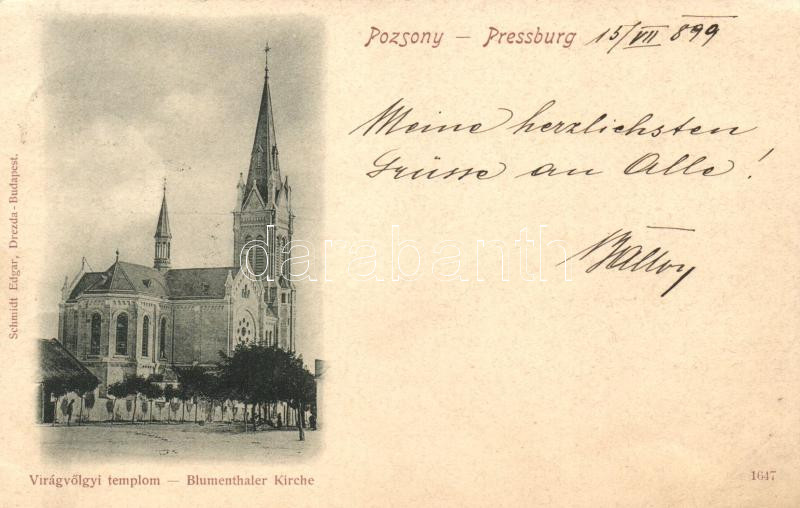 Pozsony — Pressburg 15/VII 899
Meine herzlichsten
Grüsse an Alle!
Schmidt Edgar, Drezda-Budapest.
darabanth
Virágvőlgyi templom — Blumenthaler Kirche
1647